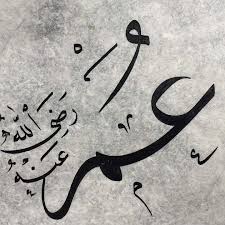 عُمَرُ
رَضِيَ اللّٰهُ
عَنْهُ